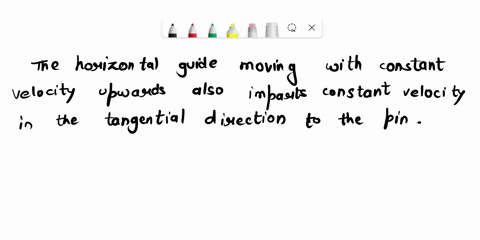 The horizontal guide moving with constant
velocity upwards also imparts constant velocity
in the tangential direction to the pin.